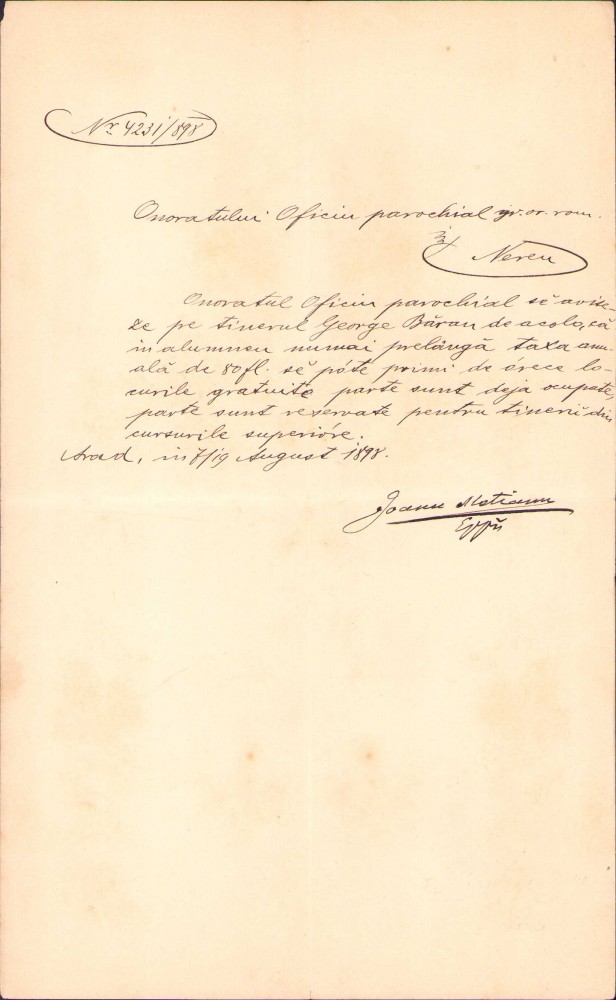 Nr. 4231/898
Onoratului Oficiu parochial gr. or. rom.
in
Nereu
Onoratul Oficiu parochial să avise-
ze pe tinerul George Băran de acolo, că
in alumneu numai prelângă taxa anu-
ală de 80 fl. să póte primi de órece lo-
curile gratuite parte sunt deja ocupate,
parte sunt reservate pentru tinerii din
cursurile superióre.
Arad, in 7/19 August 1898.
Joanu Metianu
Eppu